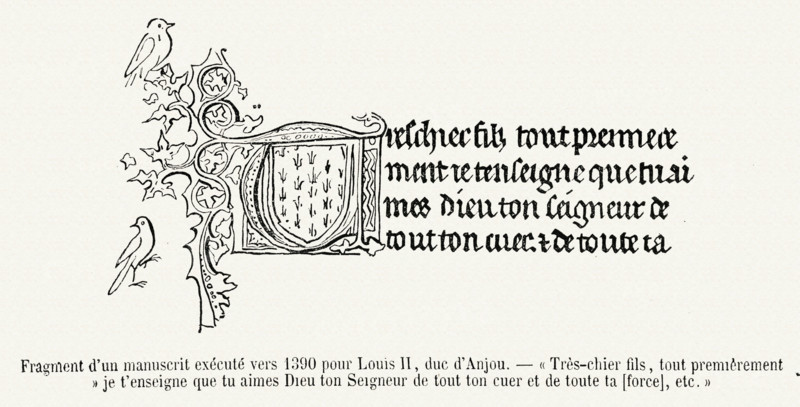 Treschier filz tout premiere
ment je tenseigne que tu ai
mes dieu ton seigneur de
tout ton cuer. ⁊ de toute ta
Fragment d'un manuscrit exécuté vers 1390 pour Louis II, duc d'Anjou. — « Très-chier fils, tout premièrement
» je t'enseigne que tu aimes Dieu ton Seigneur de tout ton cuer et de toute ta [force], etc. »